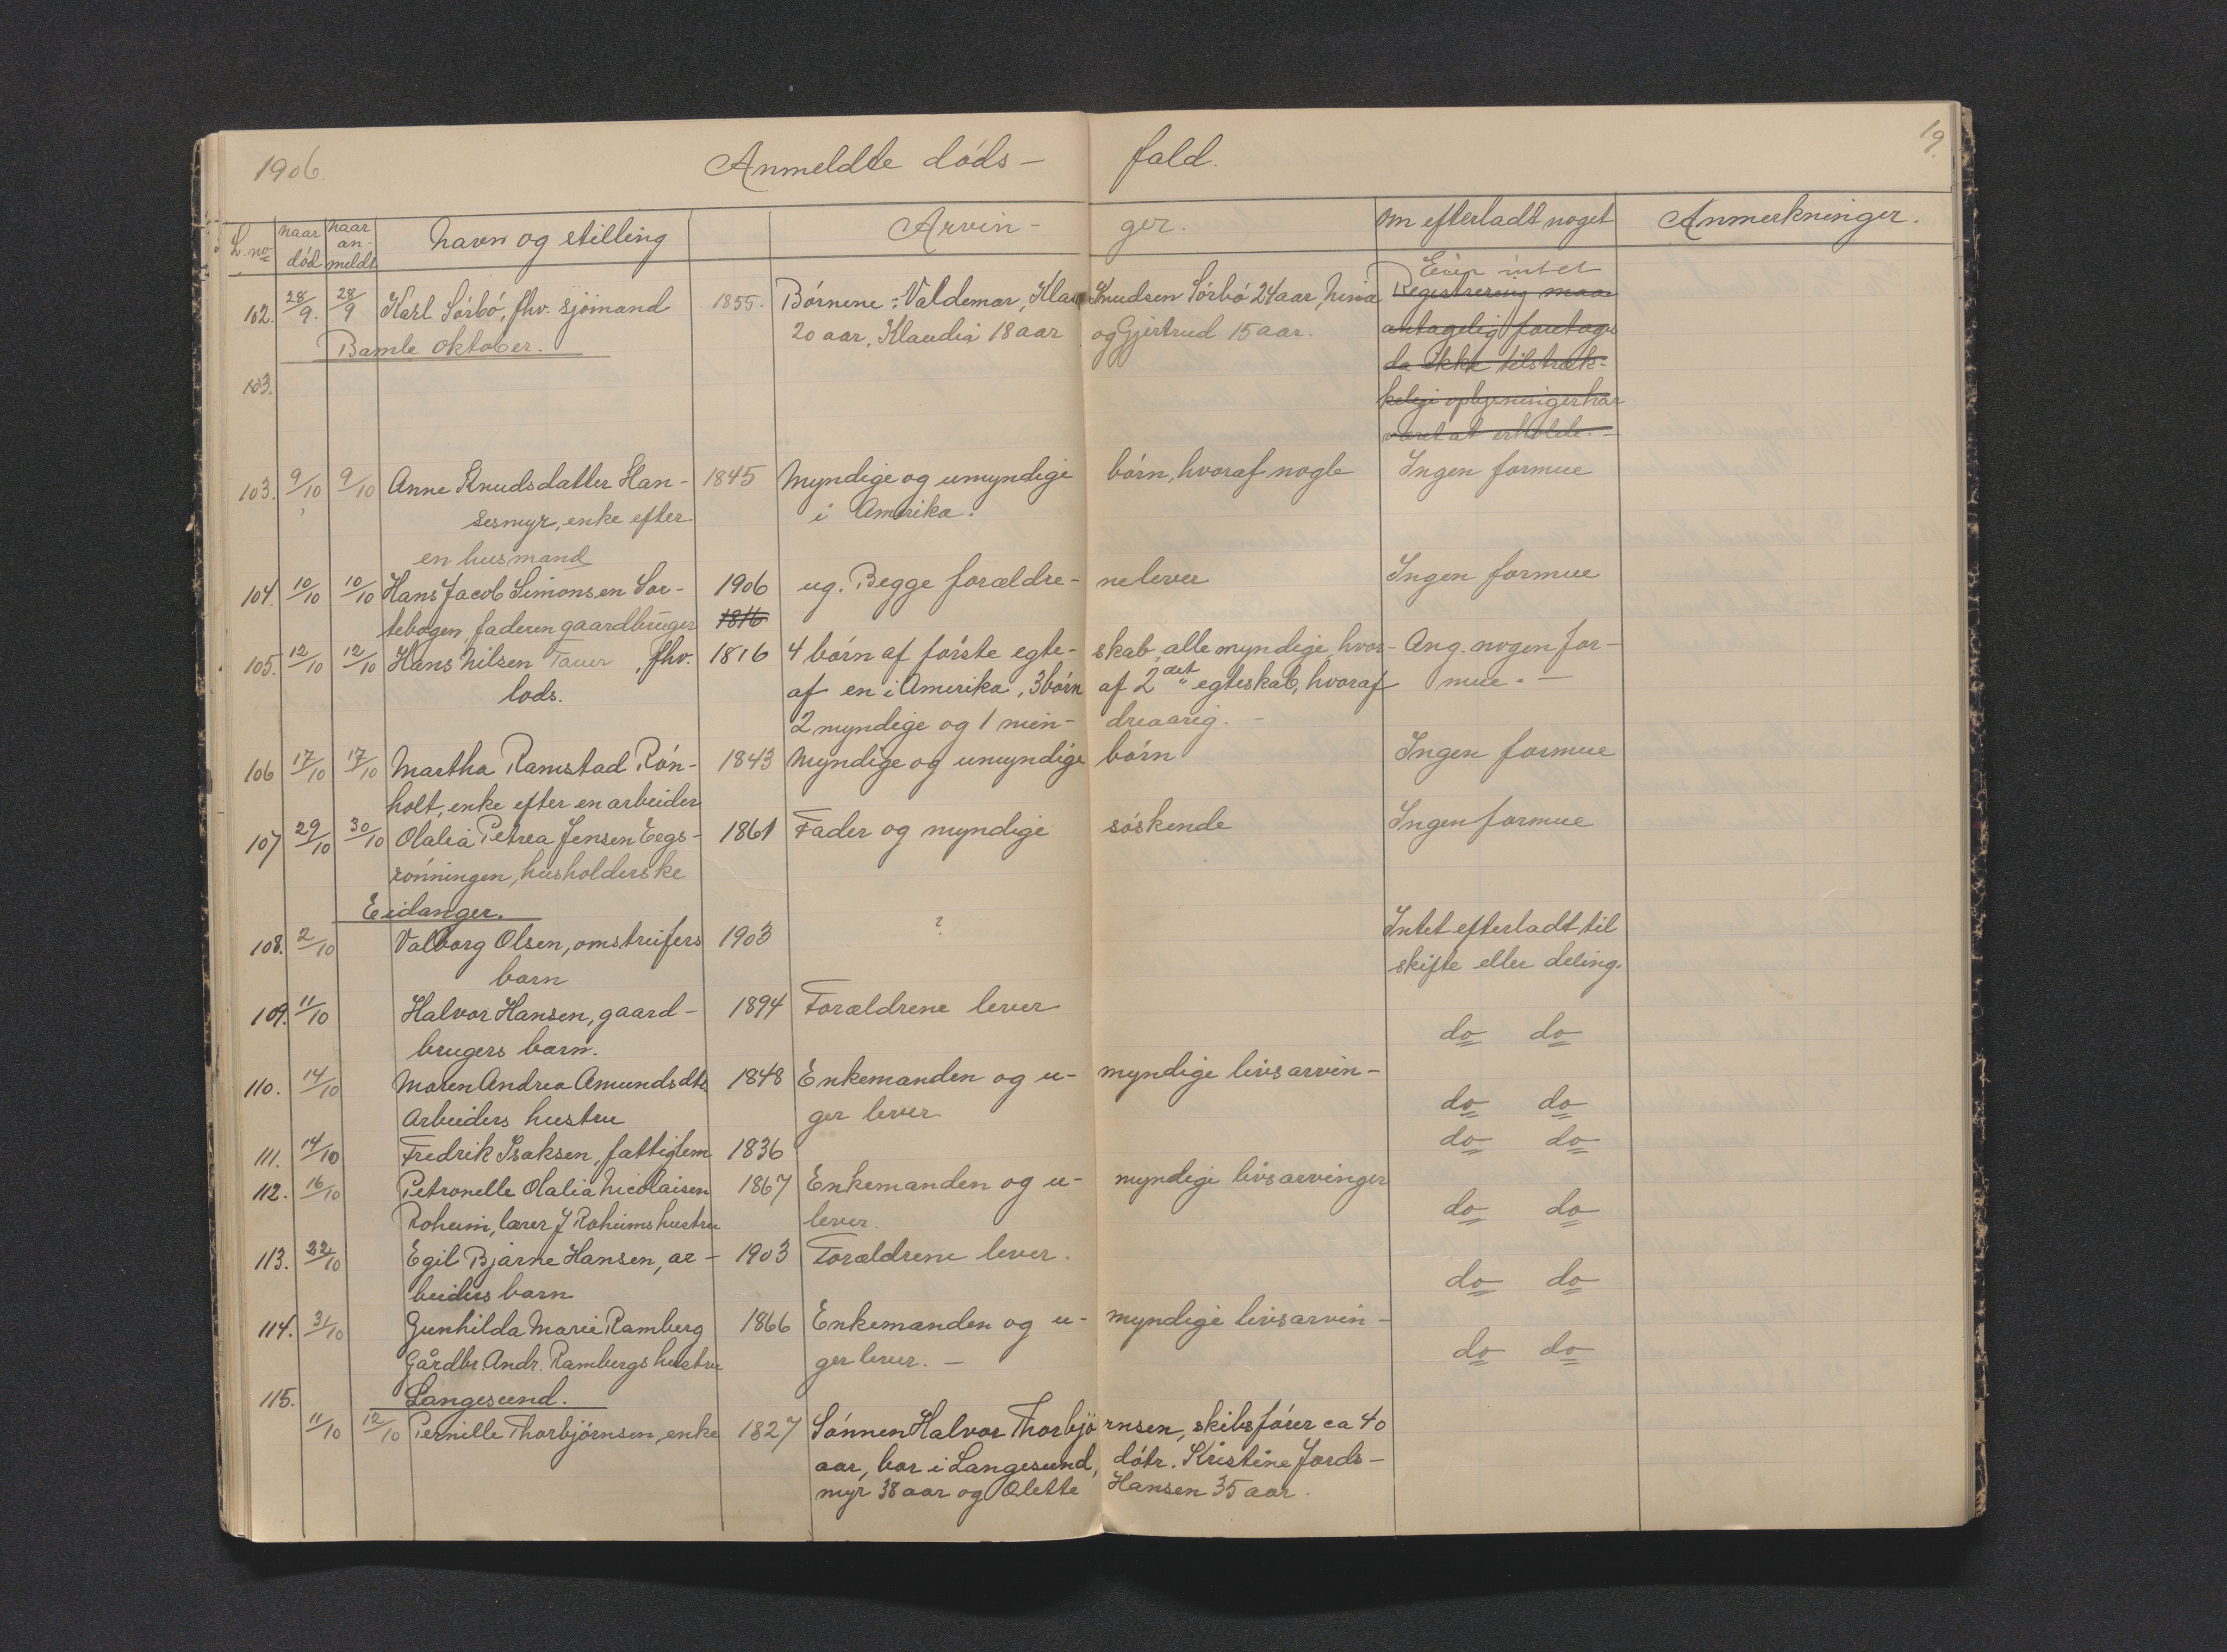 1906. Anmeldte døds- fald. 19.
L. no naar død naar an- meldt navn og stilling Arvin- ger. Om efterladt noget Anmerkninger.
Eier intet
102. 28/9. 28/9 Karl Sørbø, fhv. sjømand 1855. Børnene: Valdemar, Klaus Knudsen Sørbø 24 aar, Nina Registrering maa
20 aar, Klaudia 18 aar og Gjertrud 15 aar. antagelig foretages
Bamle oktober.
da ikke tilstræk-
103.
kelige oplysninger har
været at erholde. -
103. 9/10 9/10 Anne Knudsdatter Han- 1845 Myndige og umyndige børn, hvoraf nogle Ingen formue
sesmyr, enke efter i Amerika.
en husmand
104. 10/10 10/10 Hans Jacob Simonsen Sor- 1906 ug. Begge forældre- ne lever Ingen formue
tebogen, faderen gaardbruger 1816
105. 12/10 12/10 Hans Nilsen Tauer, fhv. 1816 4 børn af første egte- skab, alle myndige, hvor- Ang. nogen for-
lods. af en i Amerika, 3 børn af 2det egteskab, hvoraf mue. -
2 myndige og 1 min- dreaarig. -
106 17/10 17/10 Martha Ramstad Røn- 1843 Myndige og umyndige børn Ingen formue
holt, enke efter en arbeider
107 29/10 30/10 Olalia Petrea Jensen Eegs- 1861 Fader og myndige søskende Ingen formue
rønningen, husholderske
Eidanger.
108. 2/10 Valborg Olsen, omstreifers 1903 ? Intet efterladt til
barn skifte eller deling.
109. 11/10 Halvor Hansen, gaard- 1894 Forældrene lever do do
brugers barn.
110. 14/10 Maren Andrea Amundsdtr 1848 Enkemanden og u- myndige livsarvin- do do
Arbeiders hustru ger lever
111. 14/10 Fredrik Isaksen, fattiglem 1836 do do
112. 16/10 Petronelle Olalia Nicolaisen 1867 Enkemanden og u- myndige livsarvinger do do
Roheim, lærer J Roheims hustru lever.
113. 22/10 Egil Bjarne Hansen, ar- 1903 Forældrene lever. do do
beiders barn
114. 31/10 Gunhilda Marie Ramberg 1866 Enkemanden og u- myndige livsarvin- do do
Gårdbr. Andr. Rambergs hustru ger lever. -
115. Langesund.
11/10 12/10 Pernille Thorbjørnsen, enke 1827 Sønnen Halvor Thorbjø rnsen, skibsfører ca 40
aar, bor i Langesund, døtr. Kristine Jords-
myr 38 aar og Olette Hansen 35 aar.